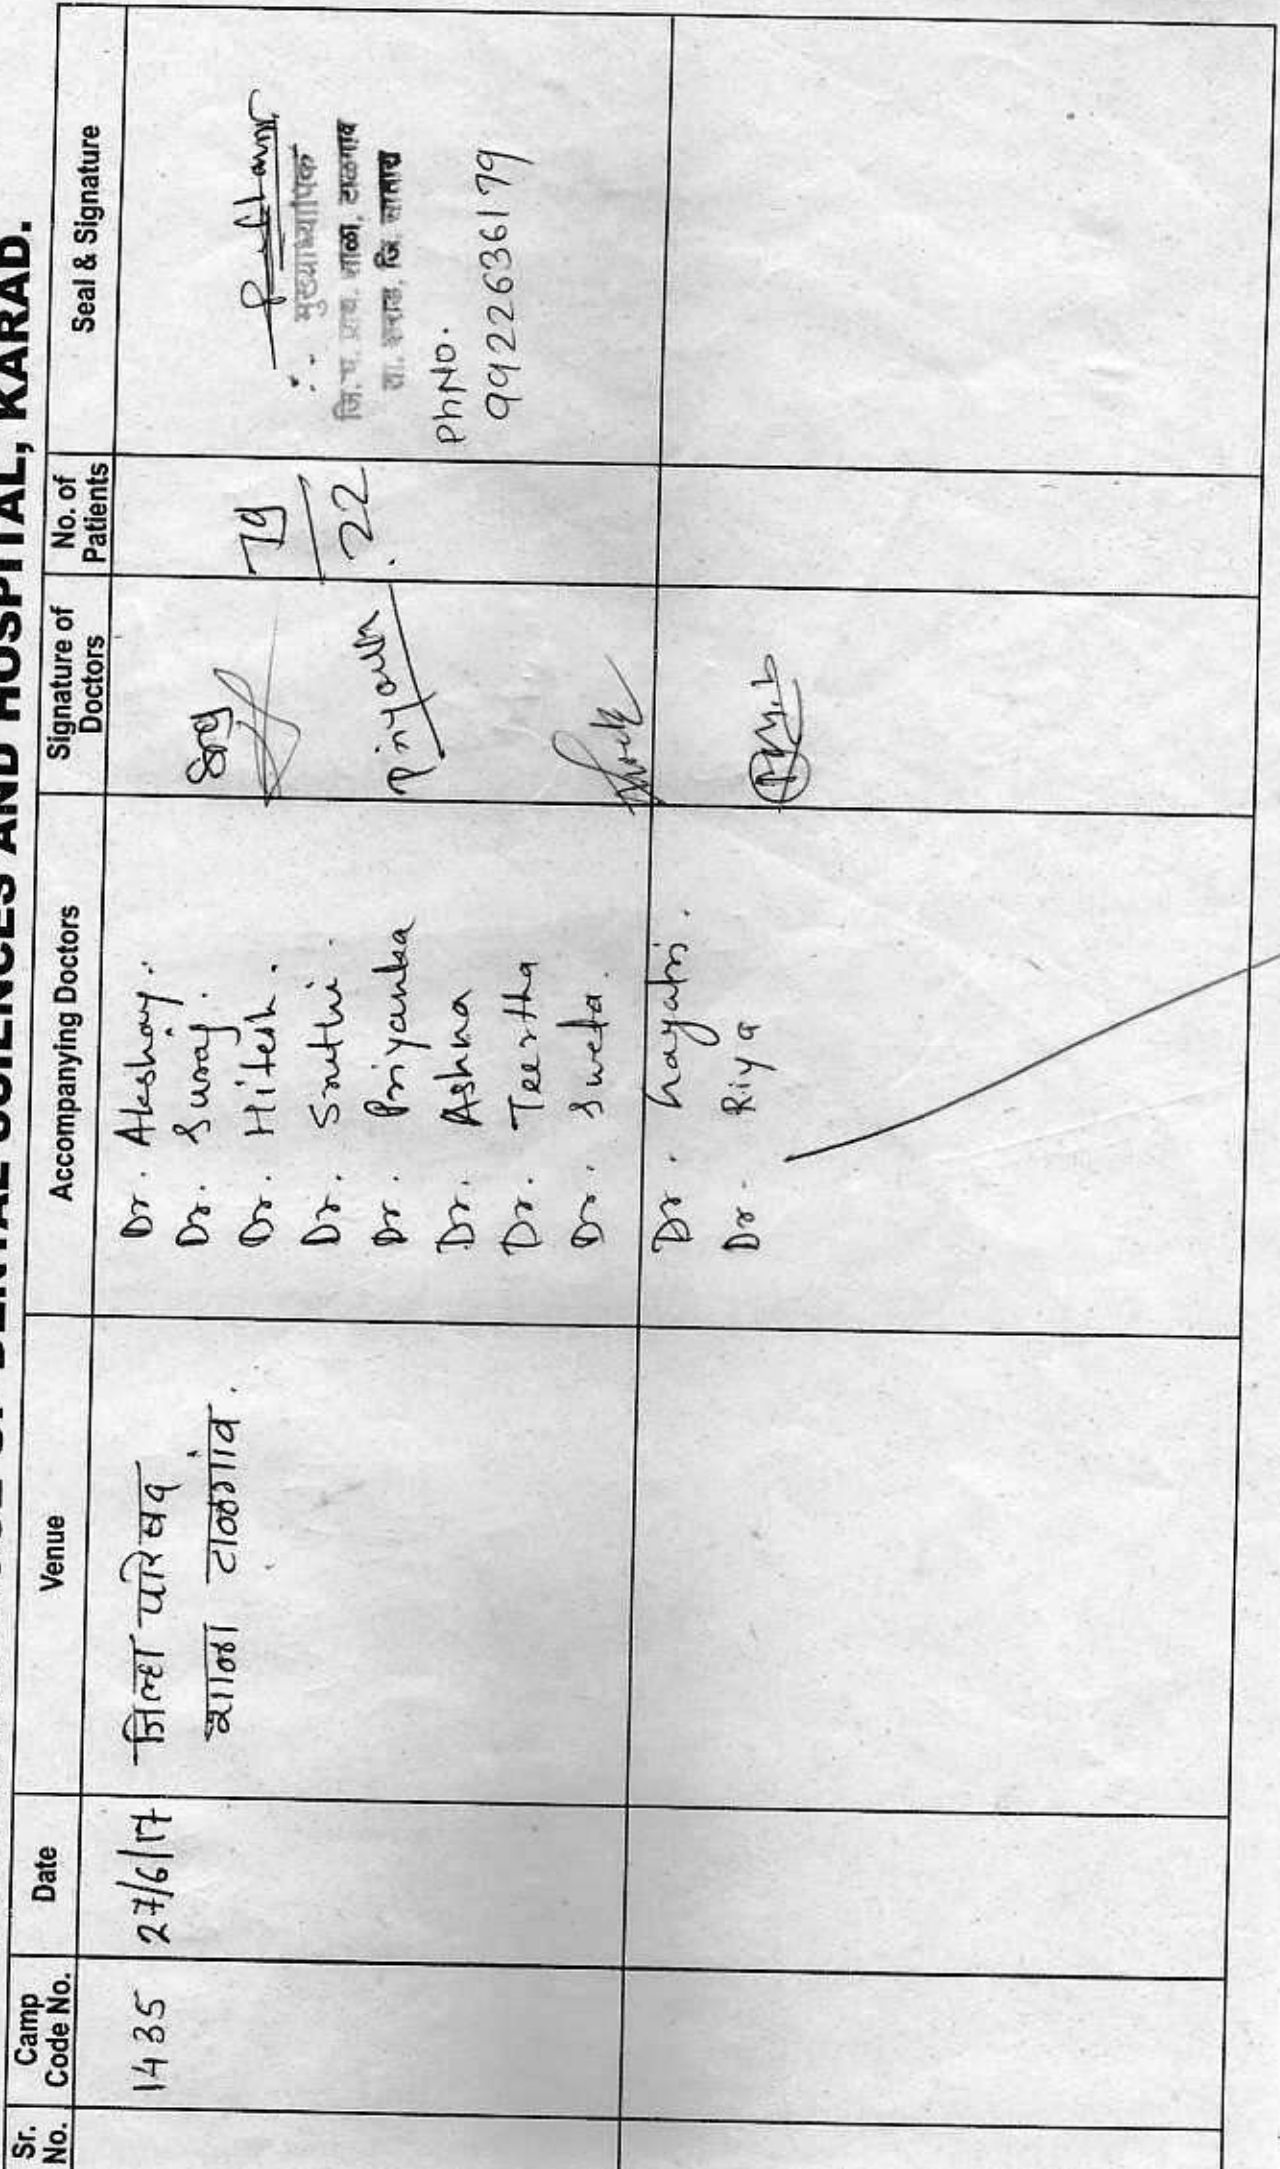 DENTAL SCIENCES AND HOSPITAL, KARAD.
Sr. No.
Camp Code No.
Date
Venue
Accompanying Doctors
Signature of Doctors
No. of Patients
Seal & Signature
1435
27/6/17
जिल्हा परिषद
शाळा टाळगांव.
Dr. Akshay.
Dr. Suraj.
Dr. Hitesh.
Dr. Sruthi.
Dr. Priyanka
Dr. Ashna
Dr. Teertha
Dr. Sweta.
Dr. Gayatri.
Dr. Riya
79
22
मुख्याध्यापिक
जि. प. प्राथ. शाळा, टाळगाव
ता. कराड, जि. सातारा
PhNO.
9922636179